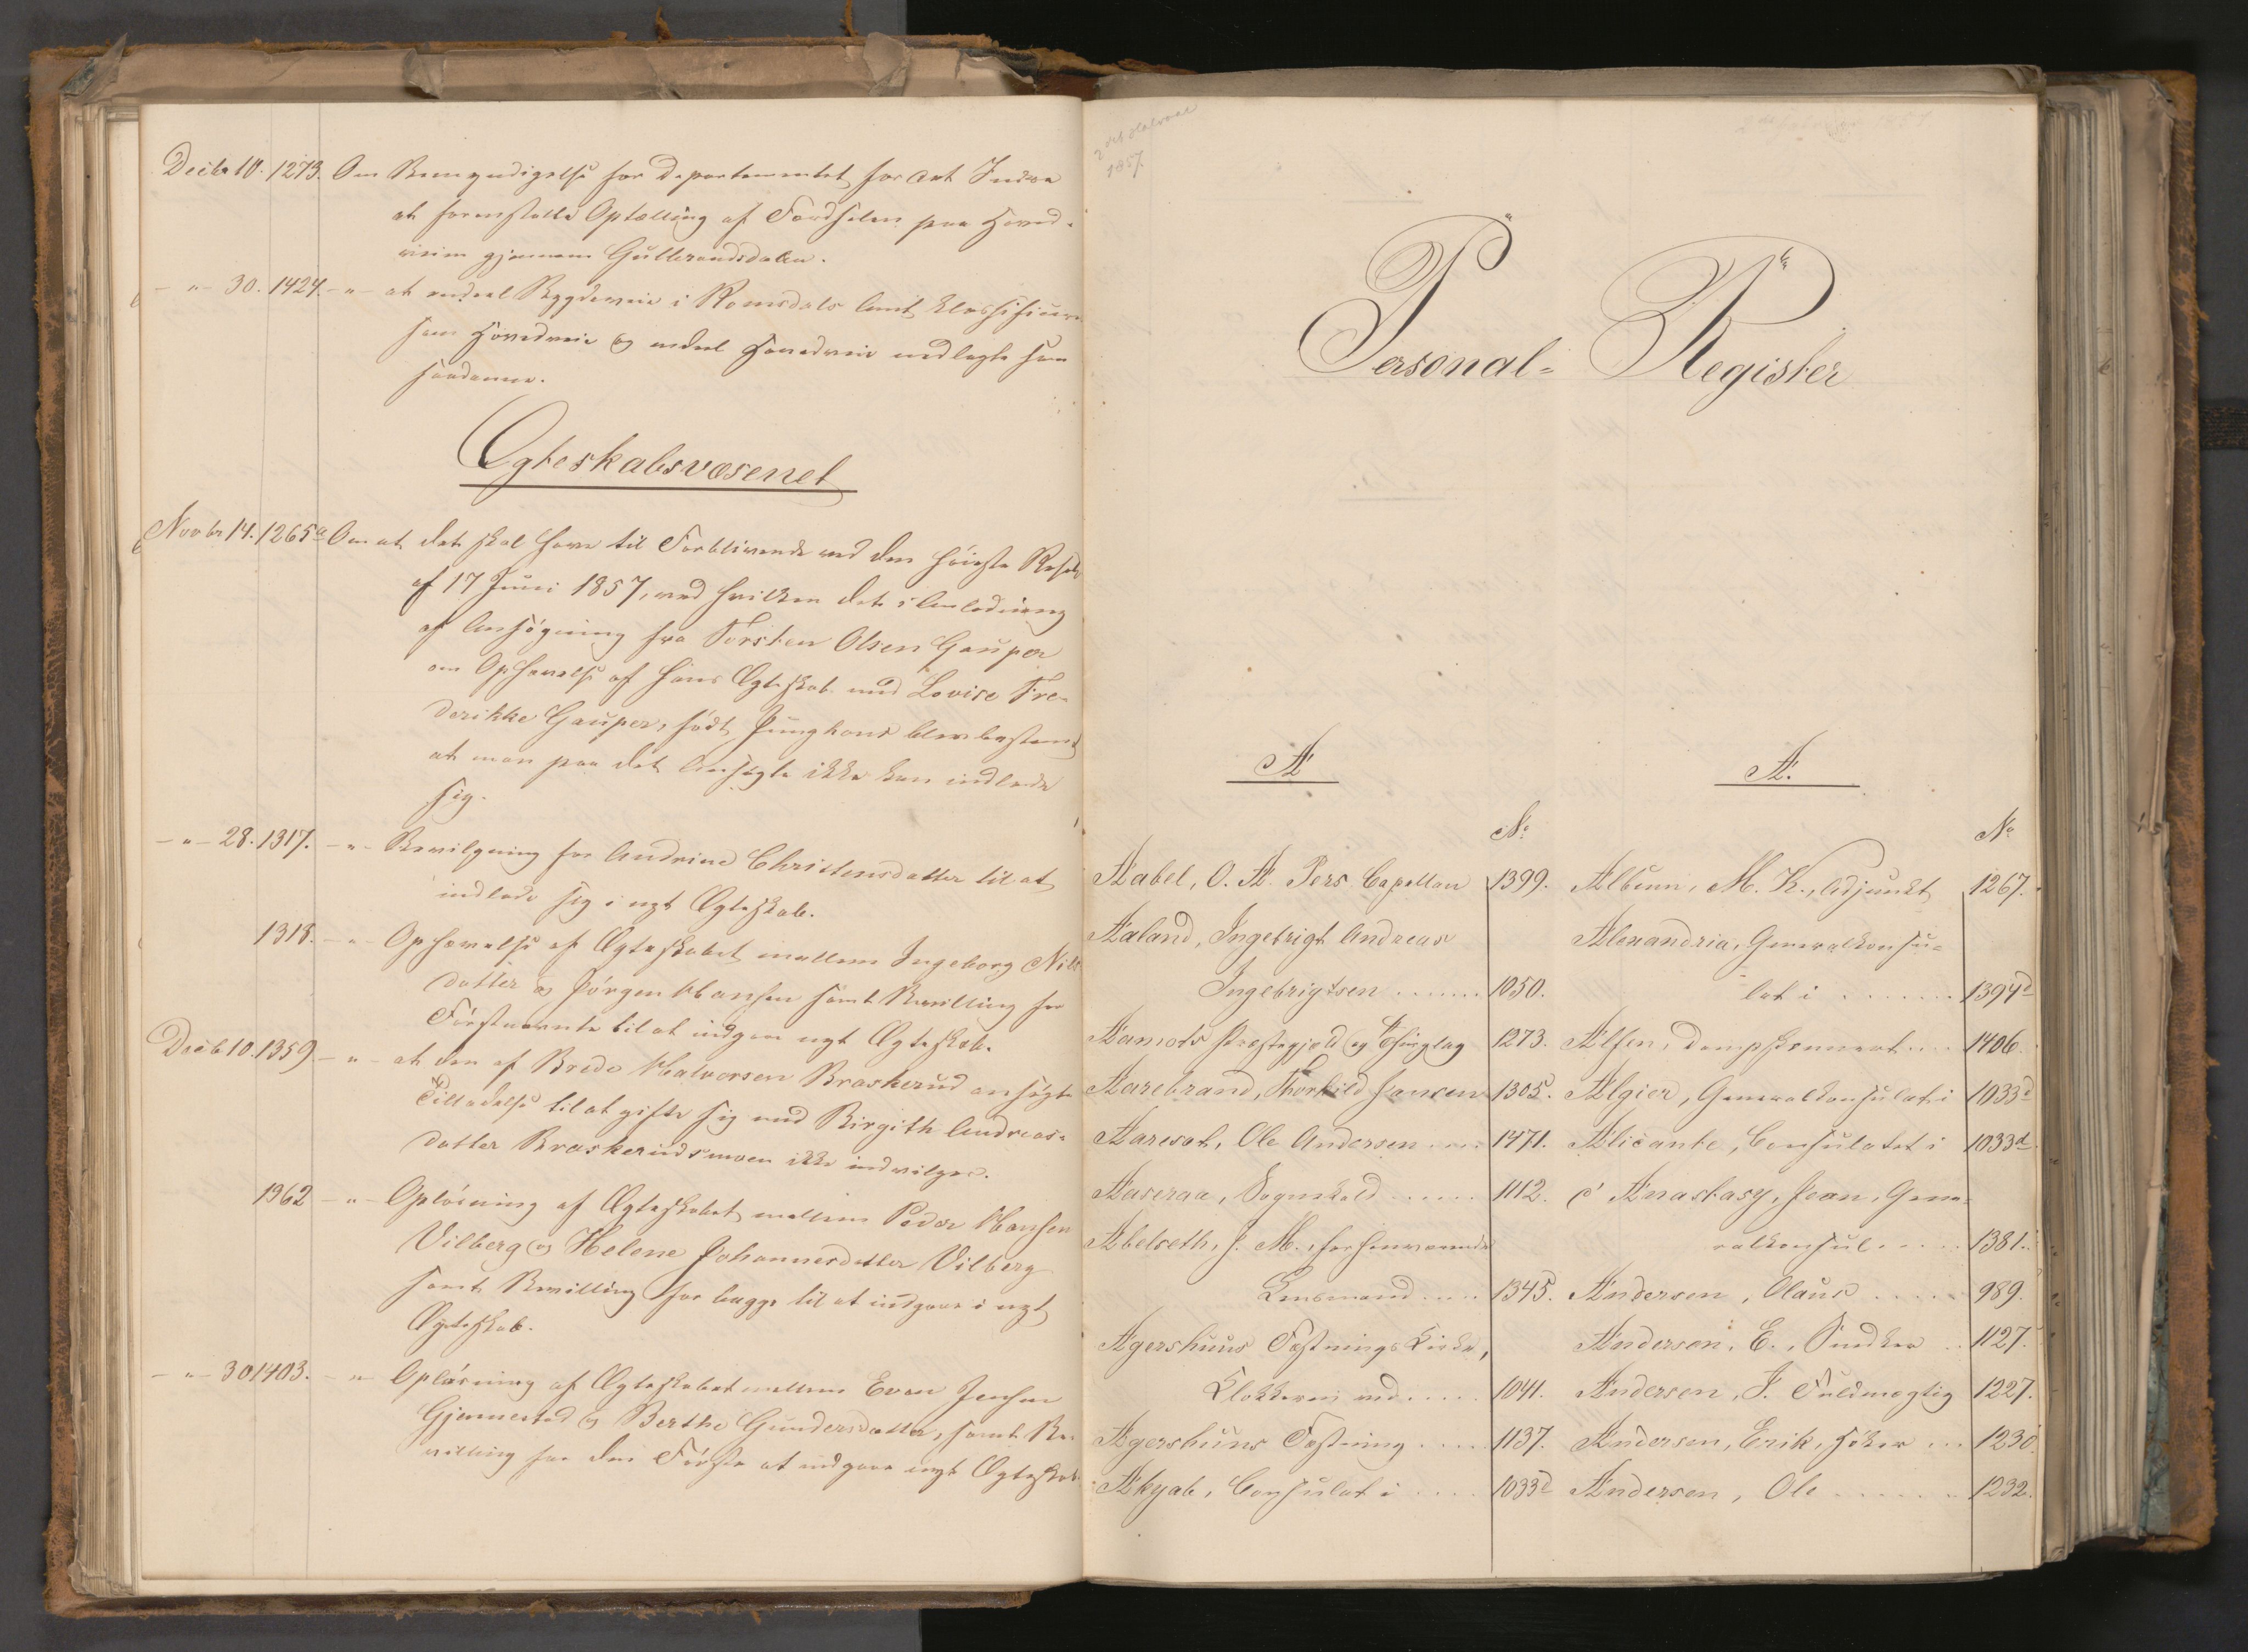 Decbr 10. 1273. Om Bemyndigelse for Departementet for det Indre
at foranstalte Optælling af Færdselen paa Hoved-
veien gjennem Gulbrandsdalen.
– " – 30. 1424. – " – at endeel Bygdeveie i Romsdals Amt klassificeres
som Hovedveie og endeel Hovedveie nedlægges som
saadanne.
Ægteskabsvæsenet
Novbr 14. 1265a Om at det skal have til Forblivende ved den høieste Resol.
af 17 Juni 1857, ved hvilken det i Anledning
af Ansøgning fra Torsten Olsen Gauper
om Ophævelse af hans Ægteskab med Lovise Fre-
derikke Gauper, født Junghans blev bestemt
at man paa det Ansøgte ikke kan indlade
sig.
– " – 28. 1317. – " – Bevilgning for Andrine Christensdatter til at
indlade sig i nyt Ægteskab.
1318. – " – Ophævelse af Ægteskabet mellem Ingeborg Nils
datter og Jørgen Hansen samt Bevilling for
Førstnævnte til at indgaae nyt Ægteskab.
Decb 10. 1359 – " – at den af Brede Halvorsen Braskerud ansøgte
Tilladelse til at gifte sig med Birgith Andreas-
datter Braskerudsmoen ikke indvilges.
1362 – " – Opløsning af Ægteskabet mellem Peder Hansen
Vilberg og Helene Johannesdatter Vilberg
samt Bevilling for begge til at indgaae i nyt
Ægteskab.
– " – 30 1403. – " – Opløsning af Ægteskabet mellem Even Jensen
Gjennestad og Berthe Gundersdatter, samt Be-
villing for den Første at indgaae nyt Ægteskab.
2det Halvaar
1857.
Personal- Register
A
No
Aabel, O. A. Pers. Capellan 1399.
Aaland, Ingebrigt Andreas
Ingebrigtsen ....... 1050.
Aamots Præstegjeld og Thinglag 1273.
Aarebrand, Thorkild Hansen 1305.
Aaresat, Ole Andersen .... 1471.
Aaseraa, Sognekald ...... 1112.
Abelseth, J. M., forhenværende
Lensmand ..... 1345.
Agershuus Fæstnings Kirke,
Klokkeren ved ..... 1041.
Agershuus Fæstning ..... 1137.
Akyab, Consulat i .... 1033d
A.
No
Album, M. K., Adjunkt 1267.
Alexandria, Generalkonsu-
lat i ....... 1394d
Alfen, Dampskonnert .... 1406.
Algier, Generalkonsulat i 1033d
Alicante, Consulatet i 1033d
d' Anastasy, Jean, Gene-
ralkonsul ..... 1381.
Andersen, Olaus ..... 989.
Andersen, E., Snedker .. 1127.
Andersen, J. Fuldmægtig 1227.
Andersen, Erik, Høker ... 1230.
Andersen, Ole ....... 1232.